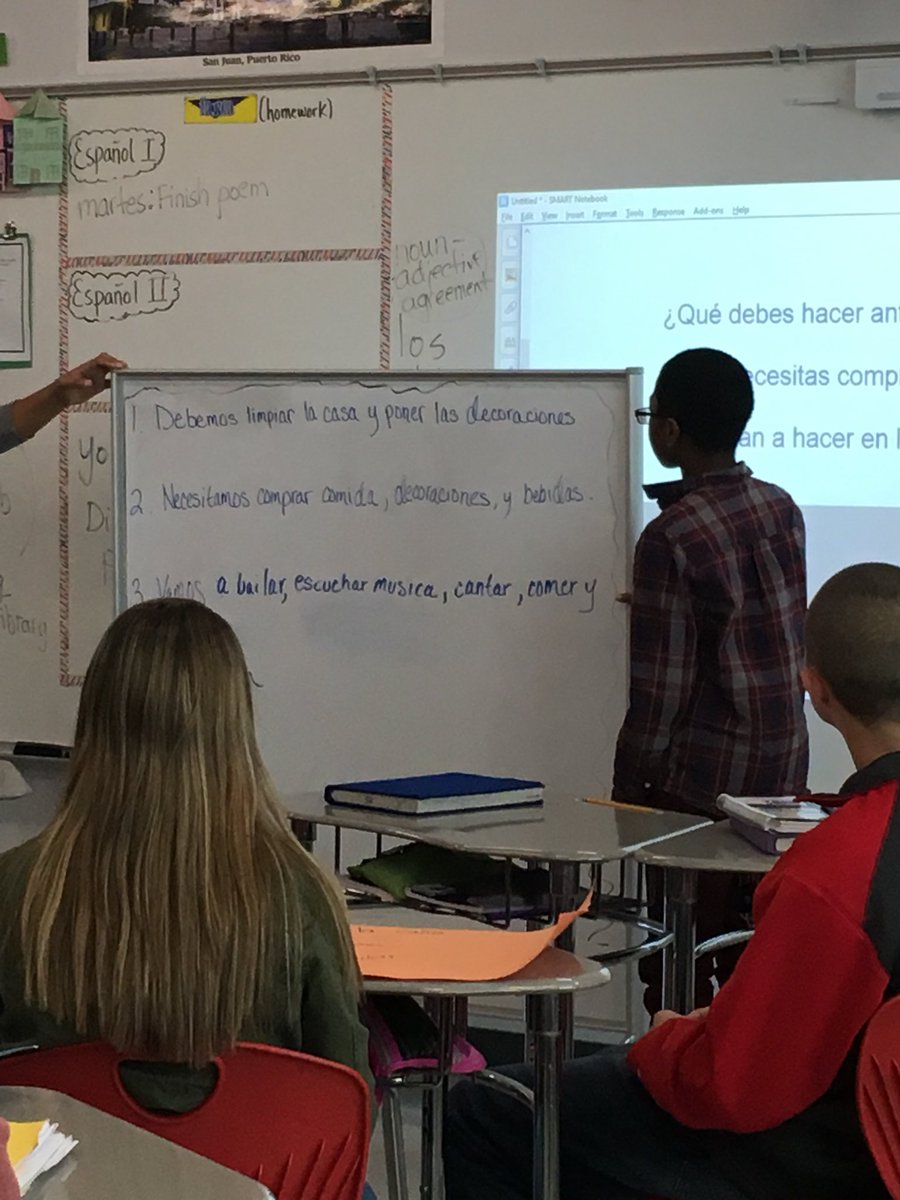 San Juan, Puerto Rico
(homework)
Español I
martes: Finish poem
Español II
noun-
adjective
agreement
los
Untitled * - SMART Notebook
File Edit View Insert Format Tools Response Add-ons Help
¿Qué debes hacer
an a hacer en
1. Debemos limpiar la casa y poner las decoraciones
2. Necesitamos comprar comida, decoraciones, y bebidas.
3. Vamos a bailar, escuchar musica, cantar, comer y
yo
Di